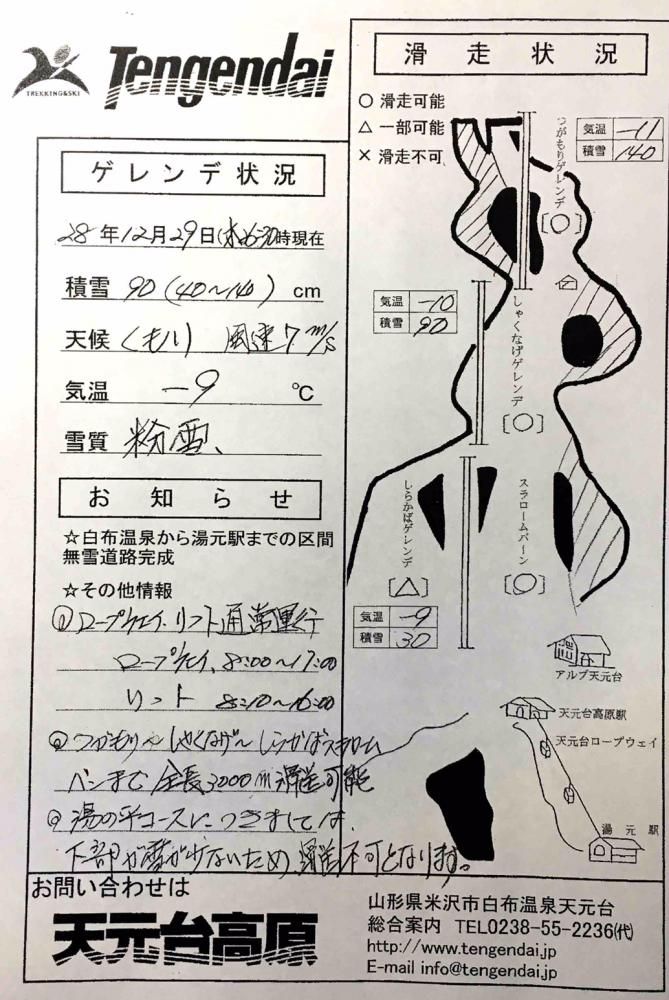 TREKKING&SKI
Tengendai
ゲレンデ状況
28年12月29日(木)6:30時現在
積雪 90 (40~140) cm
天候 くもり 風速7m/s
気温 -9 ℃
雪質 粉雪、
お知らせ
☆白布温泉から湯元駅までの区間
無雪道路完成
☆その他情報
ロープウェイ、リフト通常運行
ロープウェイ 8:00~17:00
リフト 8:10~16:00
つがもり~しゃくなげ~しらかばスラローム
バーンまで 全長3000m滑走可能
湯の平コースにつきましては、
下部が雪が少ないため滑走不可となります。
滑走状況
○ 滑走可能
△ 一部可能
× 滑走不可
つがもりゲレンデ
[○]
気温 -11
積雪 140
気温 -10
積雪 90
しゃくなげゲレンデ
[○]
しらかばゲレンデ
[△]
スラロームバーン
[○]
気温 -9
積雪 30
アルブ天元台
天元台高原駅
天元台ロープウェイ
湯元駅
お問い合わせは
天元台高原
山形県米沢市白布温泉天元台
総合案内 TEL0238-55-2236(代)
http://www.tengendai.jp
E-mail info@tengendai.jp